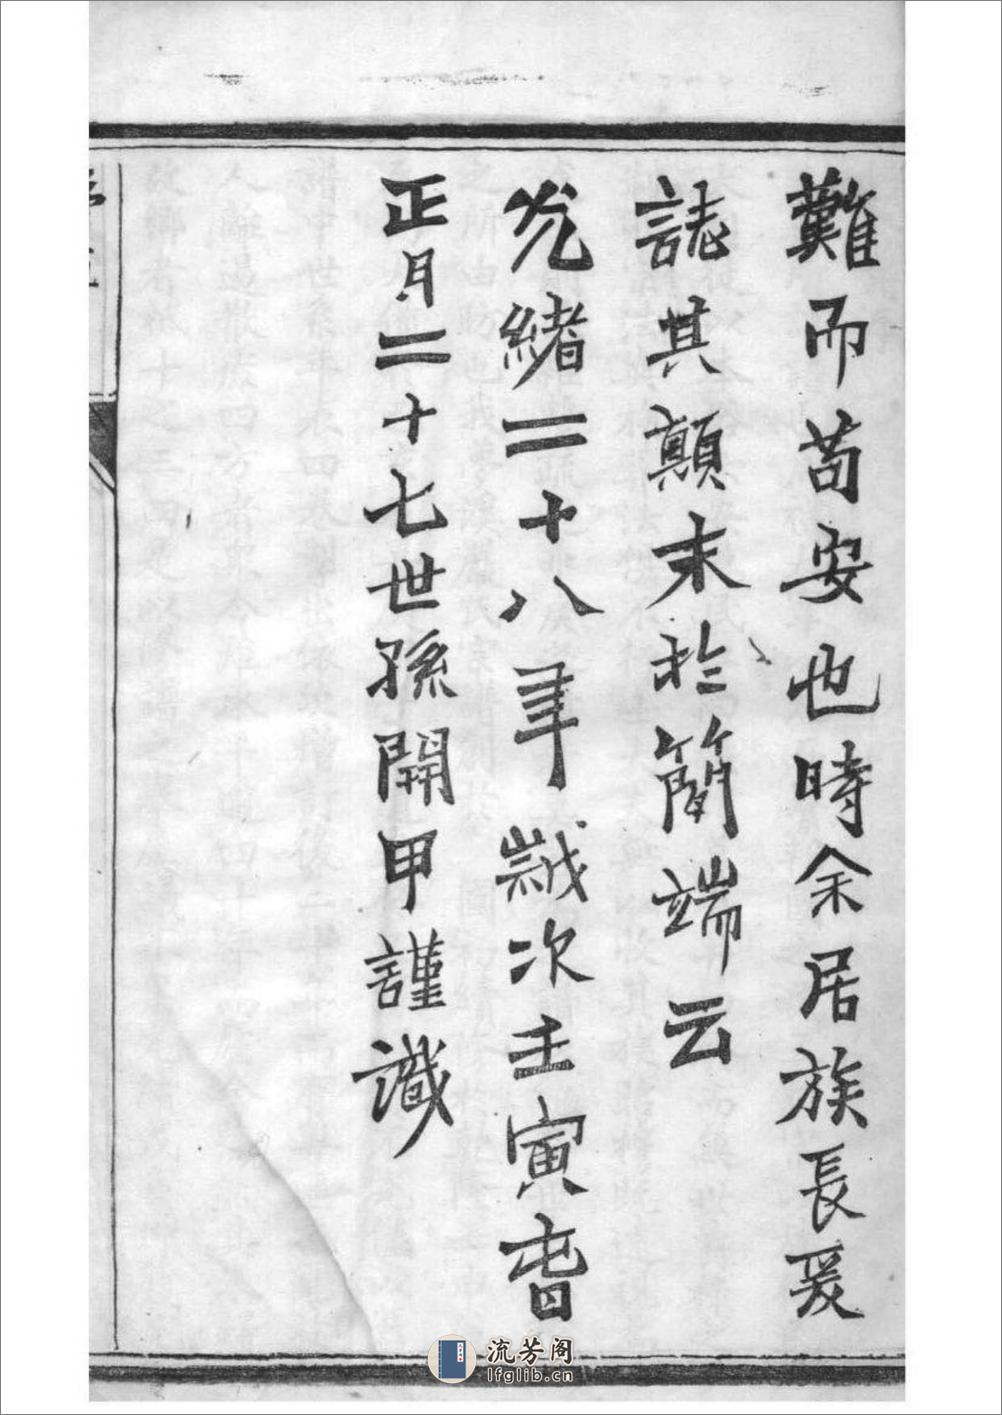 難而苟安也時余居族長爰
誌其顛末於簡端云
光緒二十八年歲次壬寅春
正月二十七世孫開甲謹識
流芳阁
lfglib.cn